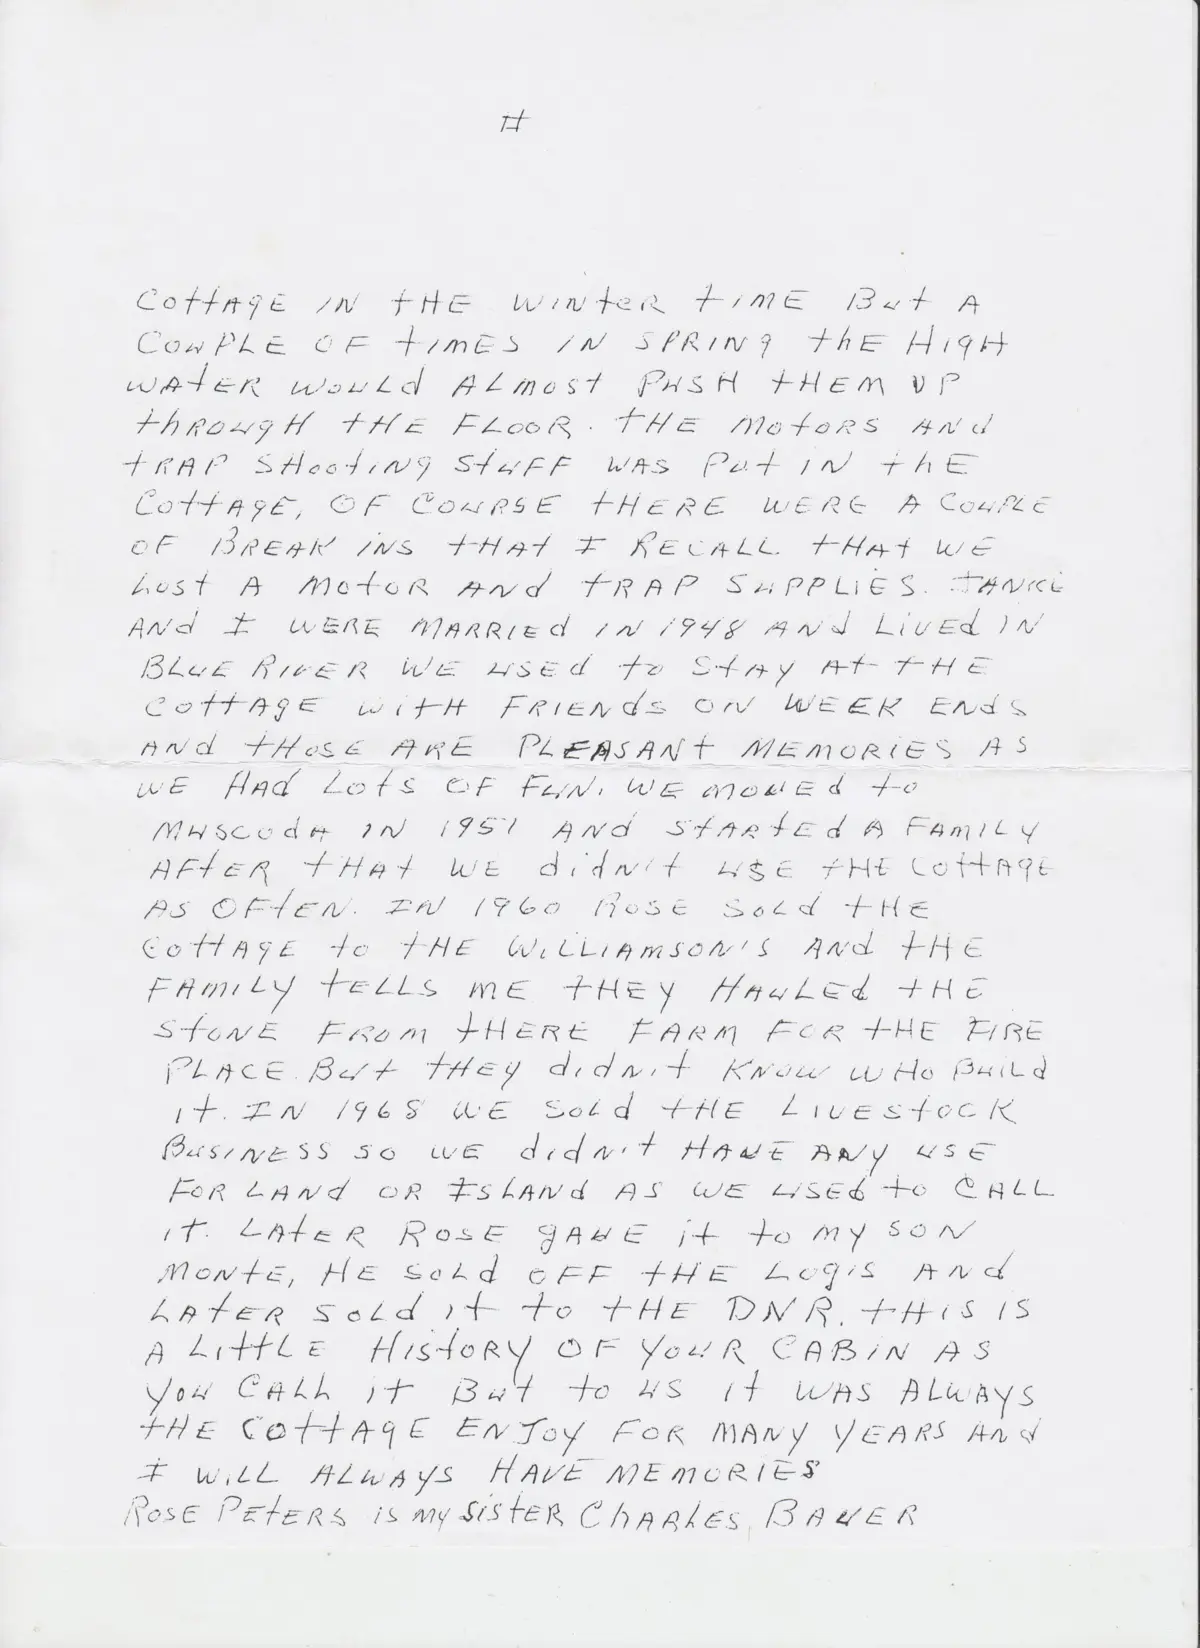 II
COTTAGE IN THE WINTER TIME BUT A
COUPLE OF TIMES IN SPRING THE HIGH
WATER WOULD ALMOST PUSH THEM UP
THROUGH THE FLOOR. THE MOTORS AND
TRAP SHOOTING STUFF WAS PUT IN THE
COTTAGE, OF COURSE THERE WERE A COUPLE
OF BREAK INS THAT I RECALL THAT WE
LOST A MOTOR AND TRAP SUPPLIES. JANICE
AND I WERE MARRIED IN 1948 AND LIVED IN
BLUE RIVER WE USED TO STAY AT THE
COTTAGE WITH FRIENDS ON WEEK ENDS
AND THOSE ARE PLEASANT MEMORIES AS
WE HAD LOTS OF FUN. WE MOVED TO
MUSCODA IN 1951 AND STARTED A FAMILY
AFTER THAT WE DIDN'T USE THE COTTAGE
AS OFTEN. IN 1960 ROSE SOLD THE
COTTAGE TO THE WILLIAMSON'S AND THE
FAMILY TELLS ME THEY HAULED THE
STONE FROM THERE FARM FOR THE FIRE
PLACE. BUT THEY DIDN'T KNOW WHO BUILD
IT. IN 1968 WE SOLD THE LIVESTOCK
BUSINESS SO WE DIDN'T HAVE ANY USE
FOR LAND OR ISLAND AS WE USED TO CALL
IT. LATER ROSE GAVE IT TO MY SON
MONTE, HE SOLD OFF THE LOGIS AND
LATER SOLD IT TO THE DNR. THIS IS
A LITTLE HISTORY OF YOUR CABIN AS
YOU CALL IT BUT TO US IT WAS ALWAYS
THE COTTAGE ENJOY FOR MANY YEARS AND
I WILL ALWAYS HAVE MEMORIES
ROSE PETERS IS MY SISTER CHARLES BAUER